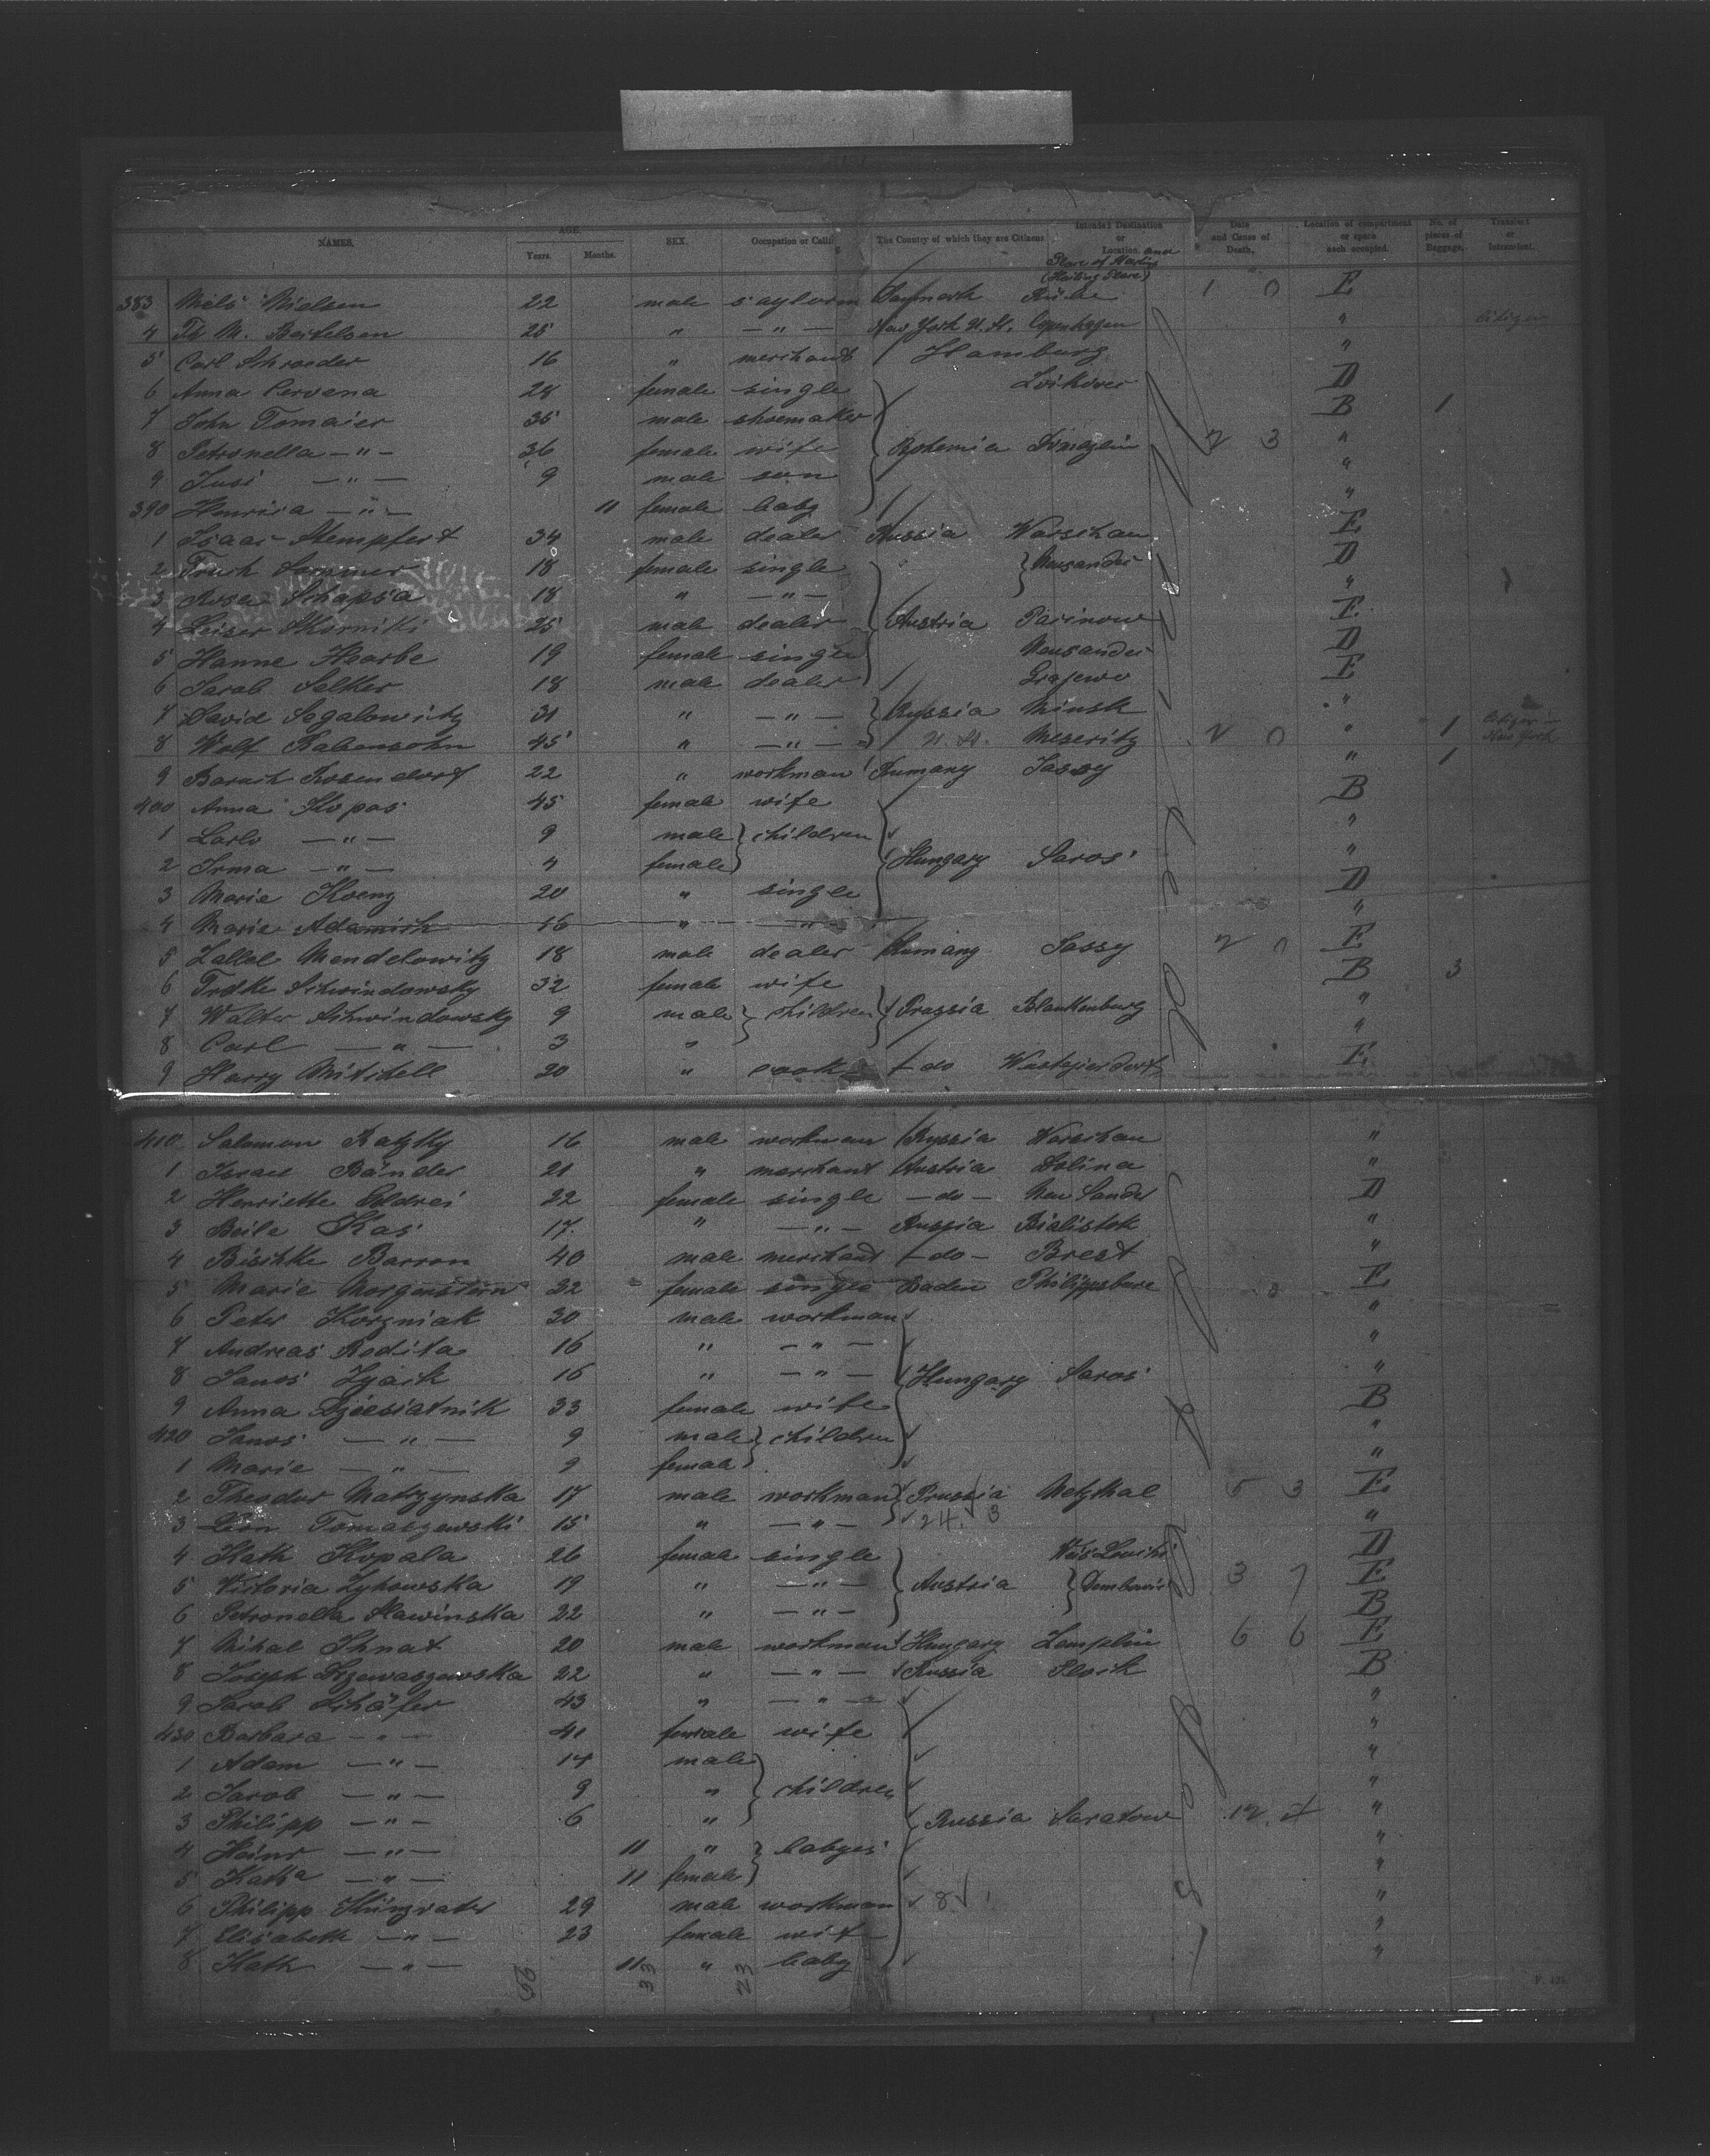 NAMES. AGE. Years. Months. SEX. Occupation or Calling The Country of which they are Citizens Intended Destination or Location. and Place of Date and Cause of Death. Location of compartment or space each occupied. No. of pieces of Baggage. Transient or
383 Niels Nielsen 22 male Danmark E
4 Th M. Bertelsen 25 " — " — New York U.St. Copenhagen " Citizen
5 Carl Schroeder 16 " merchant Hamburg "
6 Anna Cervena 28 female single D
7 John Tomaier 35 male shoemaker B 1
8 Petronella — " — 36 female wife Bohemia 2 3 "
9 — " — 9 male son "
390 — " — 11 female baby "
1 Isaac Stempfert 34 male dealer Russia Warschau E
2 Sommer 18 female single Neusandec D
3 Rosa Schapsa 18 " — " — "
4 Leiser Skorniki 25 male dealer Austria E
5 Hanne 19 female single Neusandec D
6 Jacob Selker 18 male dealer Grajewo E
7 David Segalowitz 31 " — " — Russia Minsk "
8 Wolf 45 " — " — U. St. Meseritz 2 0 " 1 Citizen in New York
9 Baruch Rosendorf 22 " workman Rumany Jassy " 1
400 Anna Kopas 45 female wife B
1 — " — 9 male children "
2 Irma — " — 4 female Hungary Saros "
3 Marie 20 " single D
4 Marie Adamich 16 " — " — "
5 Mendelowitz 18 male dealer Rumany Jassy 2 0 E
6 Schwindowsky 32 female wife B 3
7 Walter Schwindowsky 9 male children Prussia Blankenburg "
8 Carl — " — 3 " "
9 Harry Mitchell 20 " cook do E
410 Salomon 16 male workman Russia Warschau "
1 Israel Bänder 21 " merchant Austria Dolina "
2 Henriette 22 female single — do — Neu Sandec D
3 Beile Kas 17 " — " — Russia Bialistok "
4 Barron 40 male merchant — do — Brest "
5 Marie Morgenstern 32 female single Baden Philippsburg E
6 Peter Korzniak 30 male workman "
7 Andreas Rodita 16 " — " — "
8 Janos 16 " — " — Hungary Saros "
9 Anna 33 female wife B
420 Janos — " — 9 male children "
1 Marie — " — 9 female "
2 Theodor Matrzynska 17 male workman Prussia Netzthal 5 3 E
3 Leon Tomaszewski 15 " — " — 24. 3 "
4 Kath Kopala 26 female single D
5 Victoria Zykowska 19 " — " — Austria 3 7 E
6 Petronella Slawinska 22 " — " — B
7 Mihal Ihnat 20 male workman Hungary Zemplin 6 6 E
8 Joseph 22 " — " — Russia Plock B
9 Jacob Schäfer 43 " — " — "
430 Barbara — " — 41 female wife "
1 Adam — " — 14 male "
2 Jacob — " — 9 " children "
3 Philipp — " — 6 " Russia Saratow 12. "
4 Heinr — " — 11 " babyes "
5 Katha — " — 11 female "
6 Philipp 29 male workman 8 "
7 Elisabeth — " — 23 female wife "
8 Kath — " — 11 " baby "
56 33 23